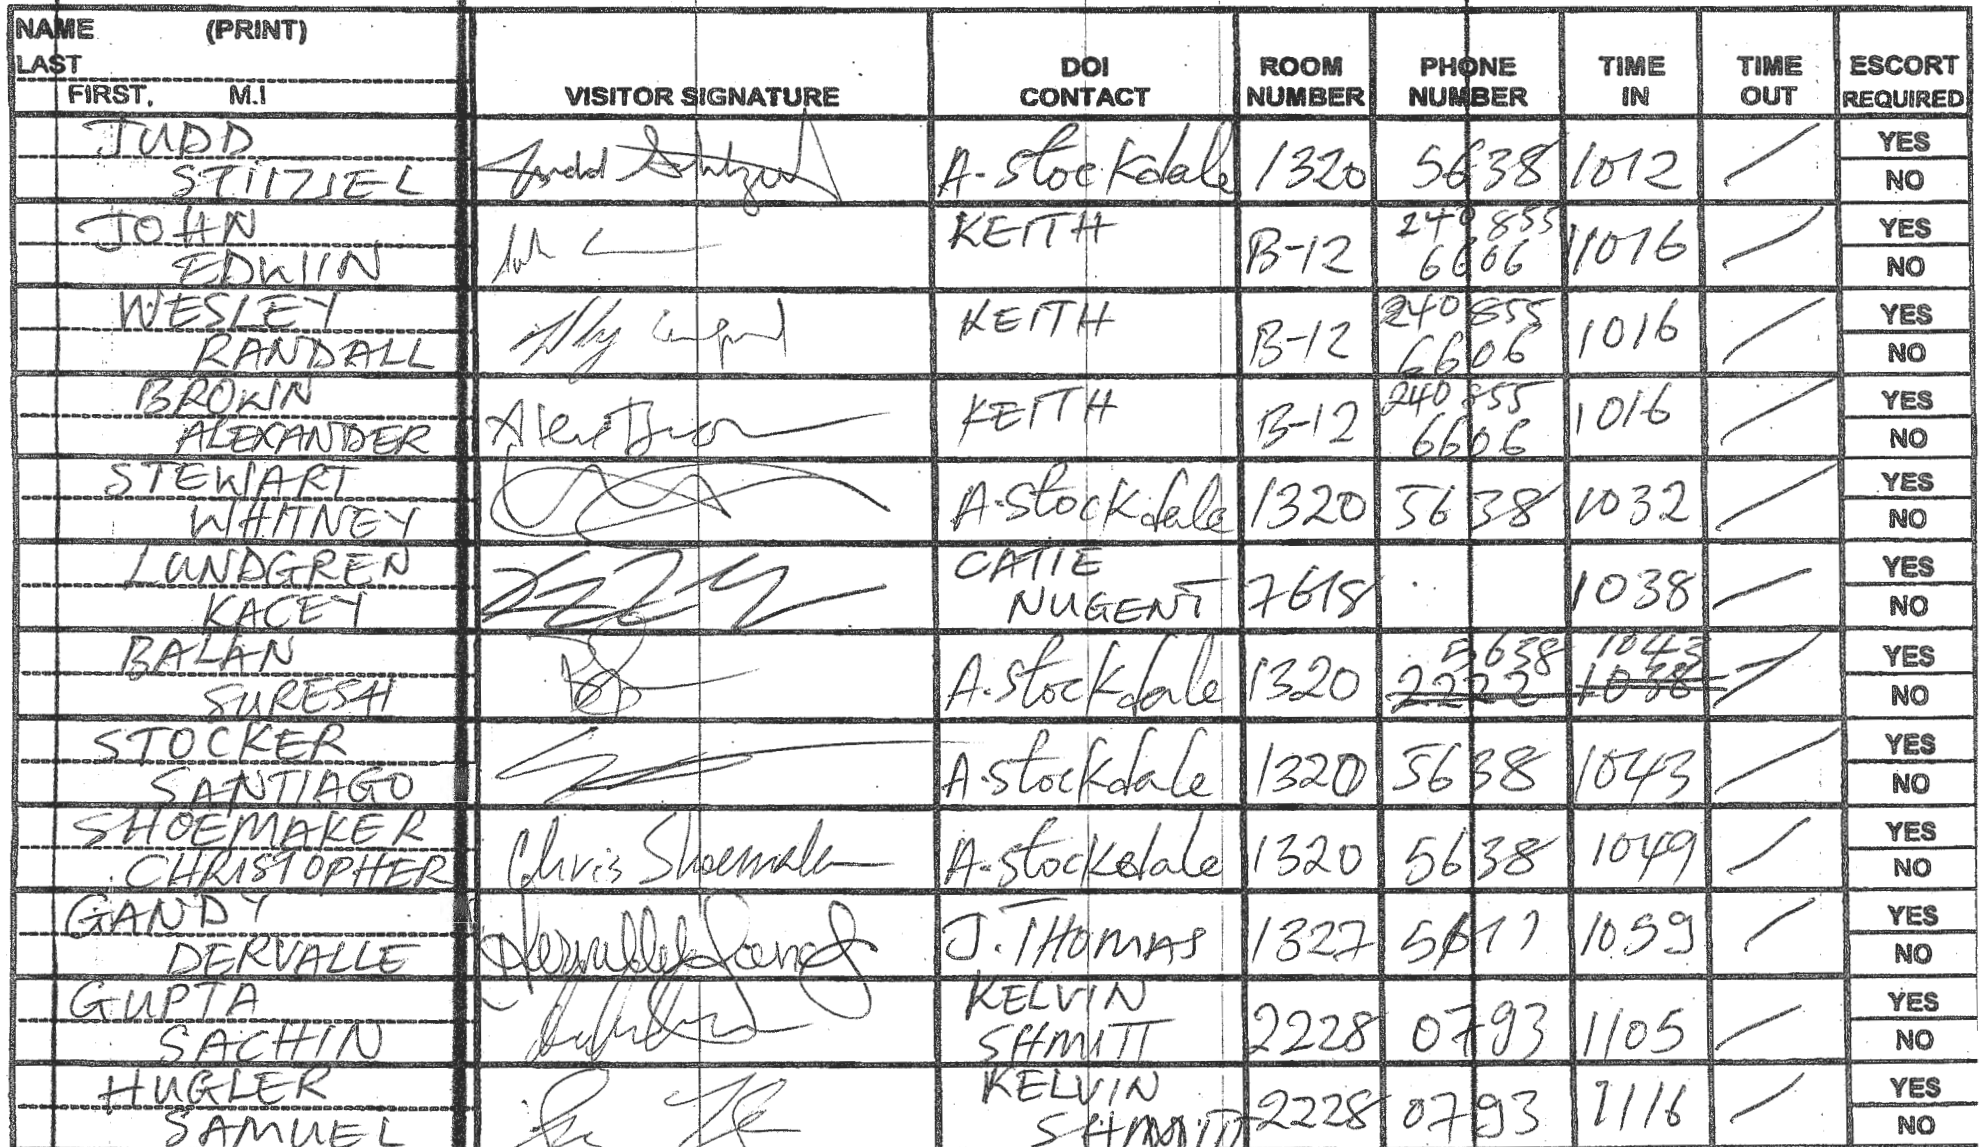 NAME (PRINT)
LAST
FIRST, M.I
VISITOR SIGNATURE
DOI CONTACT
ROOM NUMBER
PHONE NUMBER
TIME IN
TIME OUT
ESCORT REQUIRED
JUDD
STITZIEL
A. Stockdale 1320 5638 1012 / YES NO
JOHN
EDWIN
KEITH B-12 240 855 6606 1016 / YES NO
WESLEY
RANDALL
KEITH B-12 240 855 6606 1016 / YES NO
BROWN
ALEXANDER
KEITH B-12 240 855 6606 1016 / YES NO
STEWART
WHITNEY
A. Stockdale 1320 5638 1032 / YES NO
LUNDGREN
KACEY
CATIE NUGENT 7618 1038 / YES NO
BALAN
SURESH
A. Stockdale 1320 5638 2222 1043 1038 / YES NO
STOCKER
SANTIAGO
A. Stockdale 1320 5638 1043 / YES NO
SHOEMAKER
CHRISTOPHER
Chris Shoemaker A. Stockdale 1320 5638 1049 / YES NO
GANDY
DERVALLE
J. THOMAS 1327 5617 1059 / YES NO
GUPTA
SACHIN
KELVIN SHMITT 2228 0793 1105 / YES NO
HUGLER
SAMUEL
KELVIN 2228 0793 1116 / YES NO